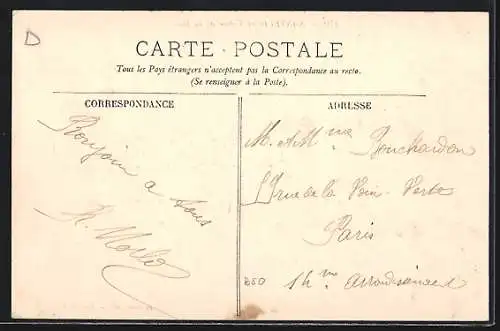 D
CARTE POSTALE
Tous les Pays étrangers n'acceptent pas la Correspondance au recto.
(Se renseigner à la Poste).
CORRESPONDANCE
ADRESSE
Bonjour
a tous
M. et Mme Bouchardon
rue de la Voie Verte
Paris
14 me arrondissement
B50